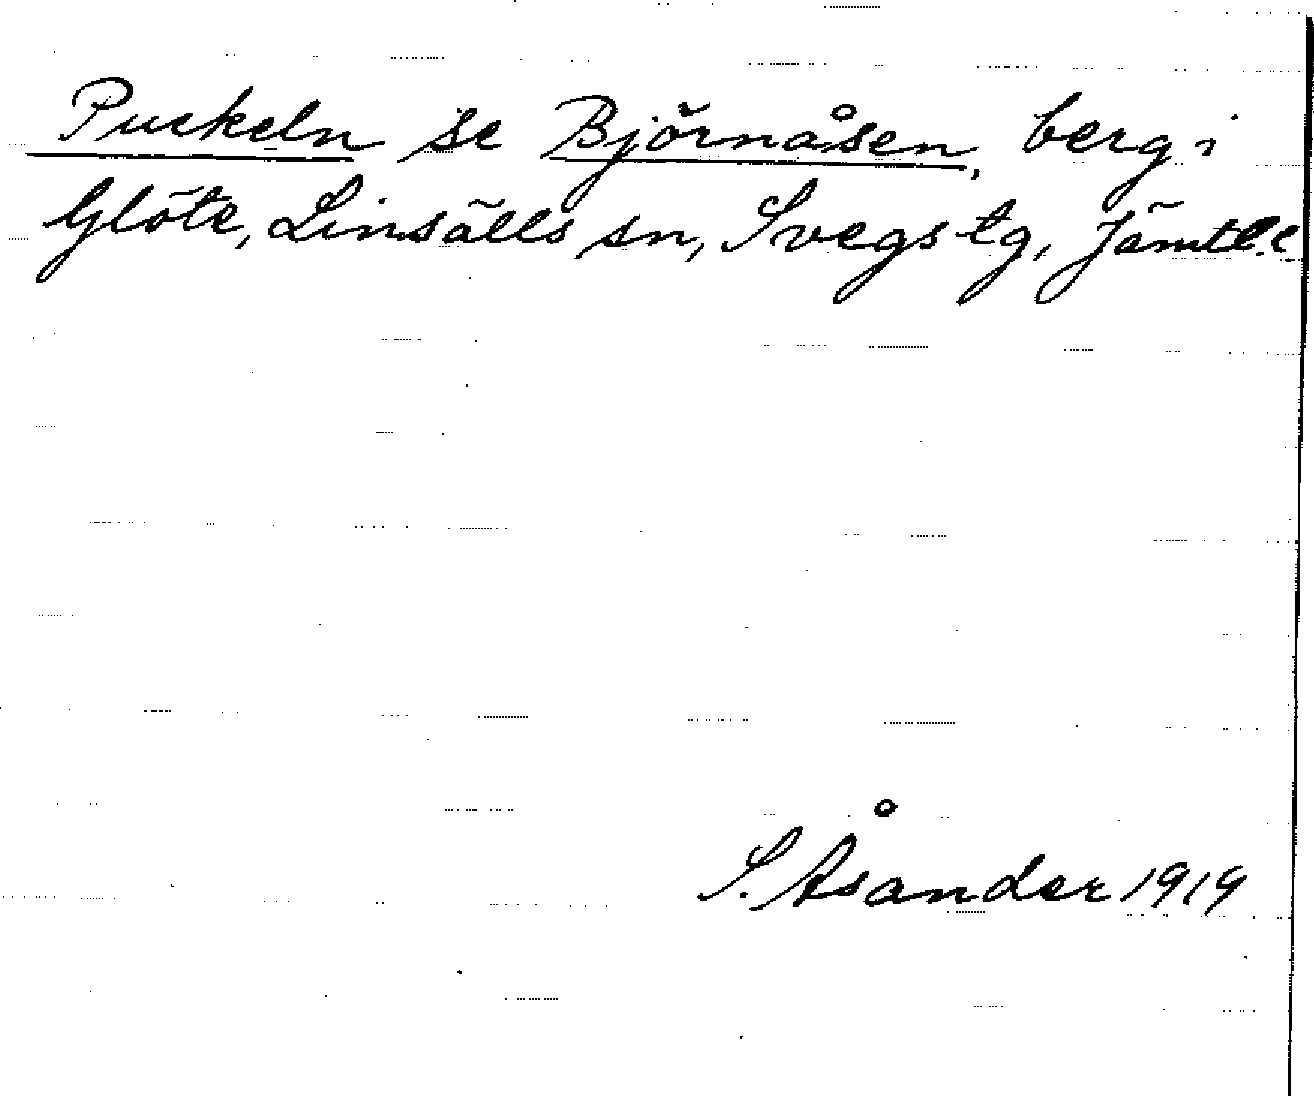 Puckeln se Björnåsen, berg i
Glöte, Linsälls sn, Svegs tg, Jämtl.l.
S. Åsander 1919